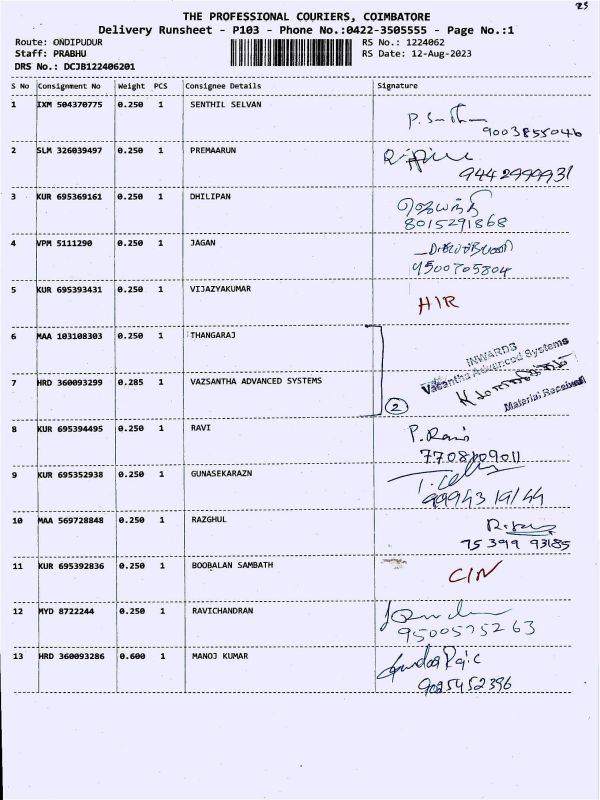 25
THE PROFESSIONAL COURIERS, COIMBATORE
Delivery Runsheet - P103 - Phone No.:0422-3505555 - Page No.:1
Route: ONDIPUDUR
RS No.: 1224062
Staff: PRABHU
RS Date: 12-Aug-2023
DRS No.: DCJB122406201
S No Consignment No Weight PCS Consignee Details Signature
1 IXM 504370775 0.250 1 SENTHIL SELVAN
9003855046
2 SLM 326039497 0.250 1 PREMAARUN
9442999931
3 KUR 695369161 0.250 1 DHILIPAN
8015291868
4 VPM 5111290 0.250 1 JAGAN
9500705804
5 KUR 695393431 0.250 1 VIJAZYAKUMAR
H/R
6 MAA 103108303 0.250 1 THANGARAJ
INWARDS
Vasantha Advanced Systems
7 HRD 360093299 0.285 1 VAZSANTHA ADVANCED SYSTEMS
Material Received
2
8 KUR 695394495 0.250 1 RAVI
P. Ravi
7708109011
9 KUR 695352938 0.250 1 GUNASEKARAZN
9994319144
10 MAA 569728848 0.250 1 RAZGHUL
75399 93185
11 KUR 695392836 0.250 1 BOOBALAN SAMBATH
C/N
12 MYD 8722244 0.250 1 RAVICHANDRAN
9500575263
13 HRD 360093286 0.600 1 MANOJ KUMAR
9025452396